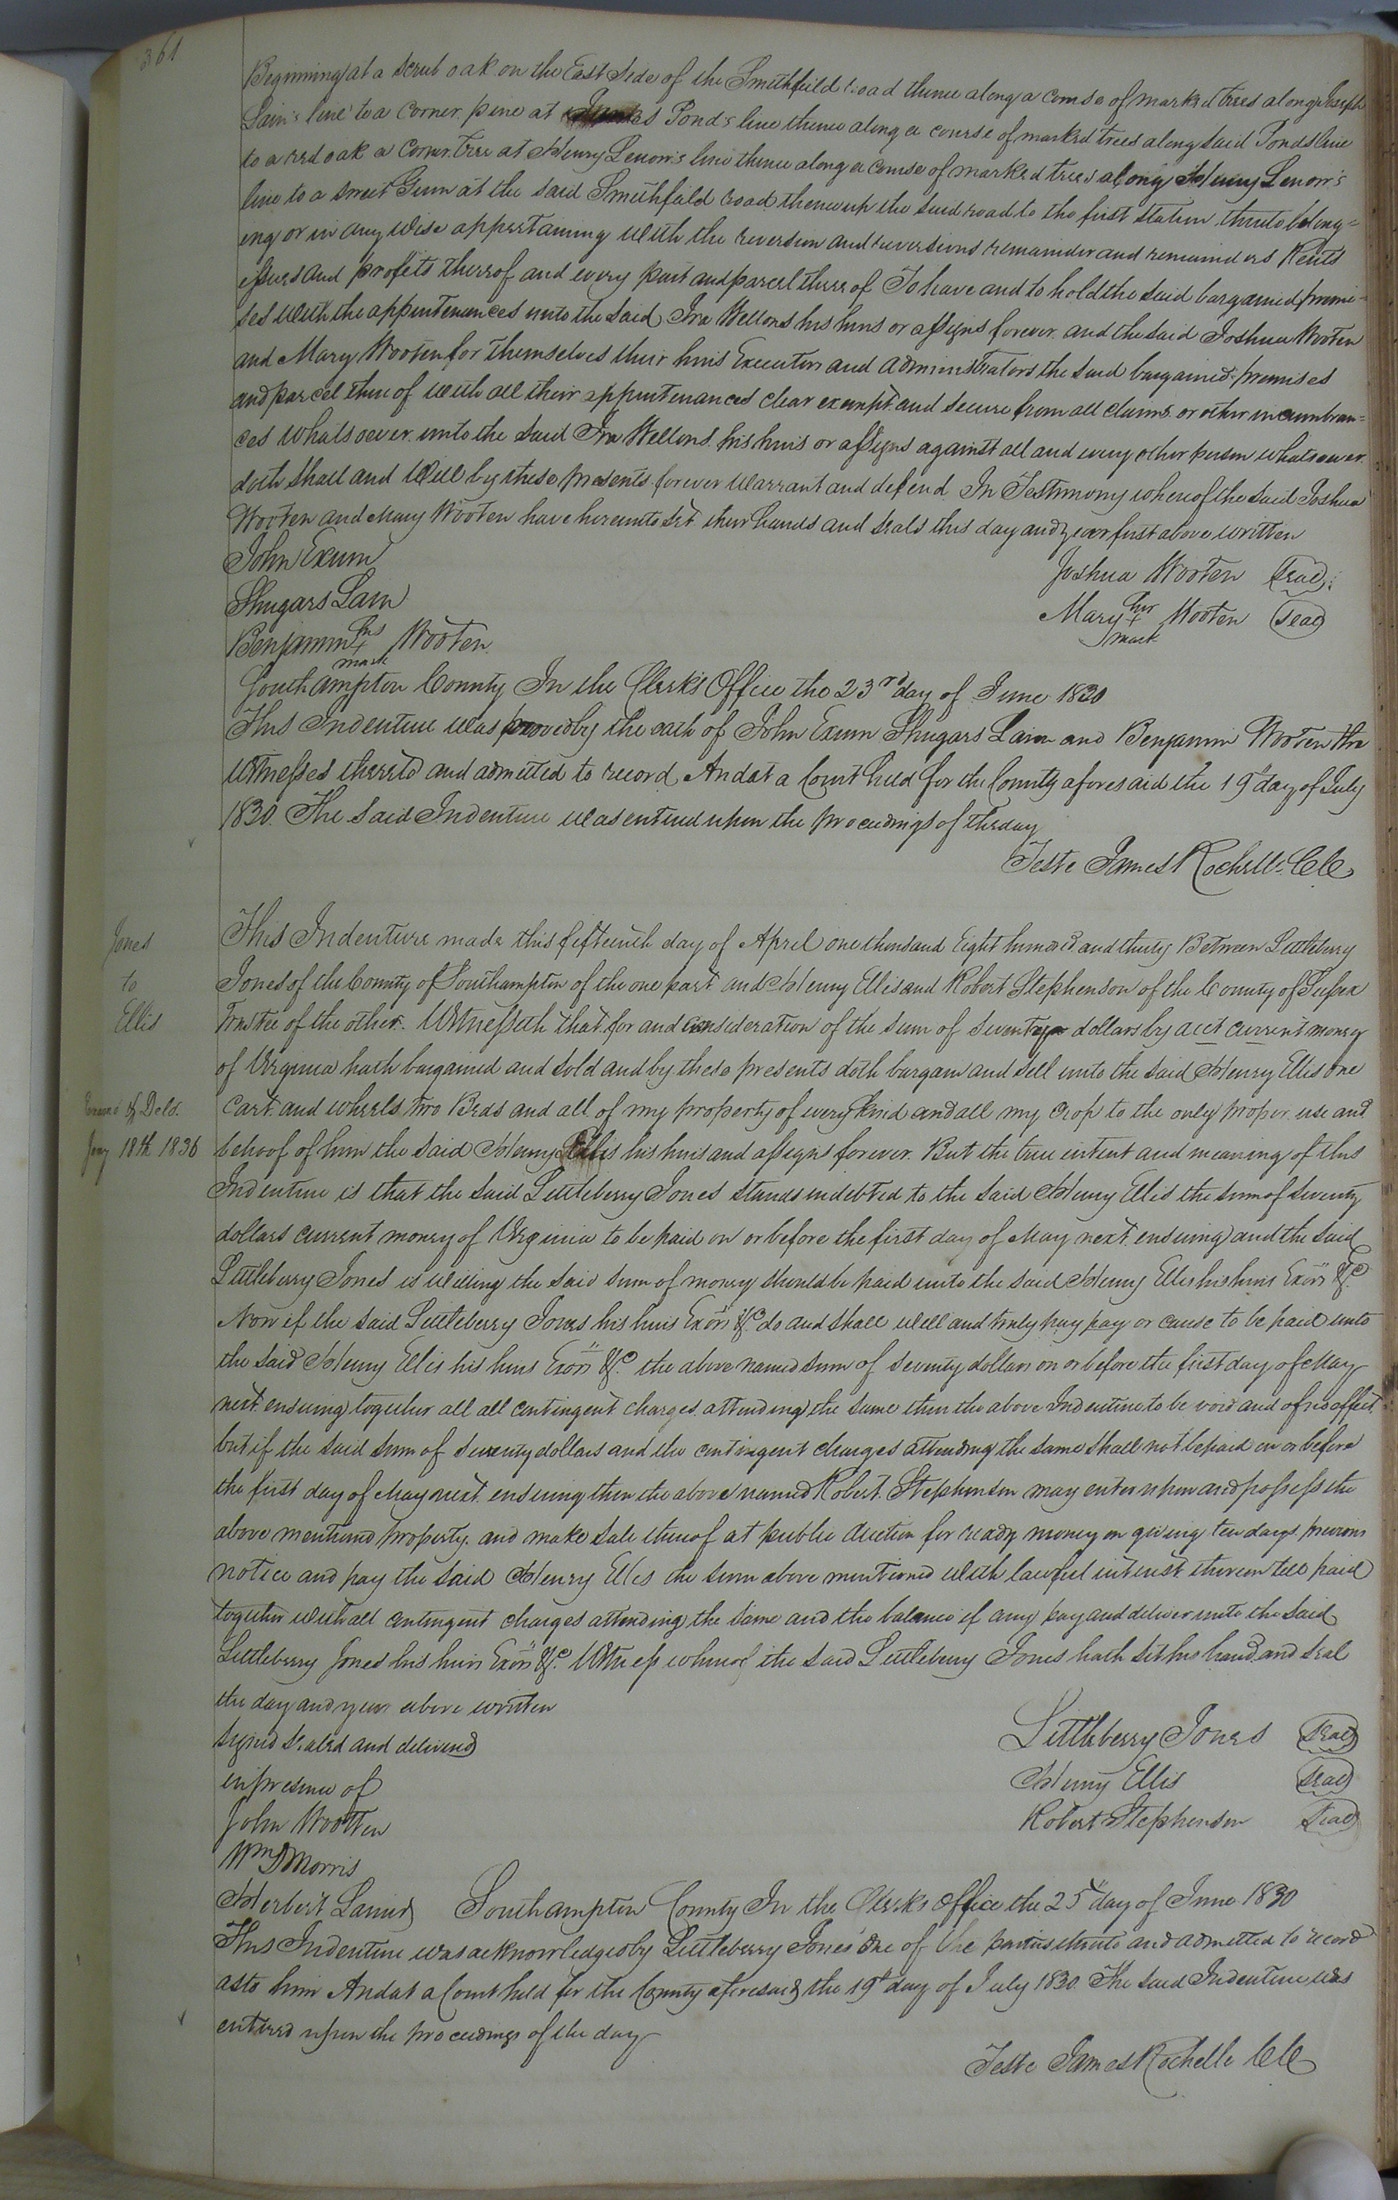 361
Beginning at a scrub oak on the East side of the Smithfield road thence along a course of marked trees along Joseph
Lain's line to a corner pine at Pond's line thence along a course of marked trees along said Ponds line
to a red oak a corner tree at Henry Lenow's line thence along a course of marked trees along Henry Lenow's
line to a sweet Gum at the said Smithfield road thence up the said road to the first station thereto belong=
ing or in any wise appertaining with the reversion and reversions remainder and remainders Rents
issues and profits thereof and every part and parcel thereof To have and to hold the said bargained premi=
ses with the appurtenances unto the said Ira Wellons his heirs or assigns forever and the said Joshua Wooten
and Mary Wooten for themselves their heirs Executors and administrators the said bargained premises
and parcel thereof with all their appurtenances clear exempt and secure from all claims or other incumbran=
ces whatsoever unto the said Ira Wellons his heirs or assigns against all and every other person whatsoever
doth shall and will by these presents forever warrant and defend In Testimony whereof the said Joshua
Wooten and Mary Wooten have hereunto set their hands and seals this day and year first above written
John Exum
Joshua Wooten Seal
Shugars Lain
Mary her + mark Wooten Seal
Benjamin his + mark Wooten
Southampton County In the Clerk's Office the 23rd day of June 1830
This Indenture was proved by the oath of John Exum Shugars Lain and Benjamin Wooten the
witnesses thereto and admitted to record And at a Court held for the County aforesaid the 19th day of July
1830 The said Indenture was entered upon the proceedings of the day
Teste James Rochelle CC
Jones
to
Ellis
Examd & Deld.
Jany 18th 1836
This Indenture made this fifteenth day of April one thousand Eight hundred and thirty Between Littleberry
Jones of the County of Southampton of the one part and Henry Ellis and Robert Stephenson of the County of Sussex
Trustee of the other. Witnesseth that for and consideration of the sum of seventy dollars by acct current money
of Virginia hath bargained and sold and by these presents doth bargain and sell unto the said Henry Ellis one
cart and wheels two Beds and all of my property of every kind and all my crop to the only proper use and
behoof of him the said Henry Ellis his heirs and assigns forever. But the true intent and meaning of this
Indenture is that the said Littleberry Jones stands indebted to the said Henry Ellis the sum of seventy
dollars current money of Virginia to be paid on or before the first day of May next ensuing and the said
Littleberry Jones is willing the said sum of money should be paid unto the said Henry Ellis his heirs Exors &c.
Now if the said Littleberry Jones his heirs Exors &c do and shall well and truly pay pay or cause to be paid unto
the said Henry Ellis his heirs Exors &c. the above named sum of seventy dollars on or before the first day of May
next ensuing together all all contingent charges attending the same then the above Indenture to be void and of no effect
but if the said sum of seventy dollars and the contingent charges attending the same shall not be paid on or before
the first day of May next ensuing then the above named Robert Stephenson may enter upon and possess the
above mentioned property and make sale thereof at public Auction for ready money on giving ten days previous
notice and pay the said Henry Ellis the sum above mentioned with lawful interest thereon till paid
together with all contingent charges attending the same and the balance if any pay and deliver unto the said
Littleberry Jones his heirs Exors &c. Witness whereof the said Littleberry Jones hath set his hand and seal
the day and year above written
Signed Sealed and delivered
Littleberry Jones Seal
in presence of
Henry Ellis Seal
John Wootten
Robert Stephenson Seal
Wm D Morris
Herbert Lanier Southampton County In the Clerks Office the 25th day of June 1830
This Indenture was acknowledged by Littleberry Jones one of the parties thereto and admitted to record
as to him And at a Court held for the County aforesaid the 19th day of July 1830 The said Indenture was
entered upon the proceedings of the day
Teste James Rochelle CC